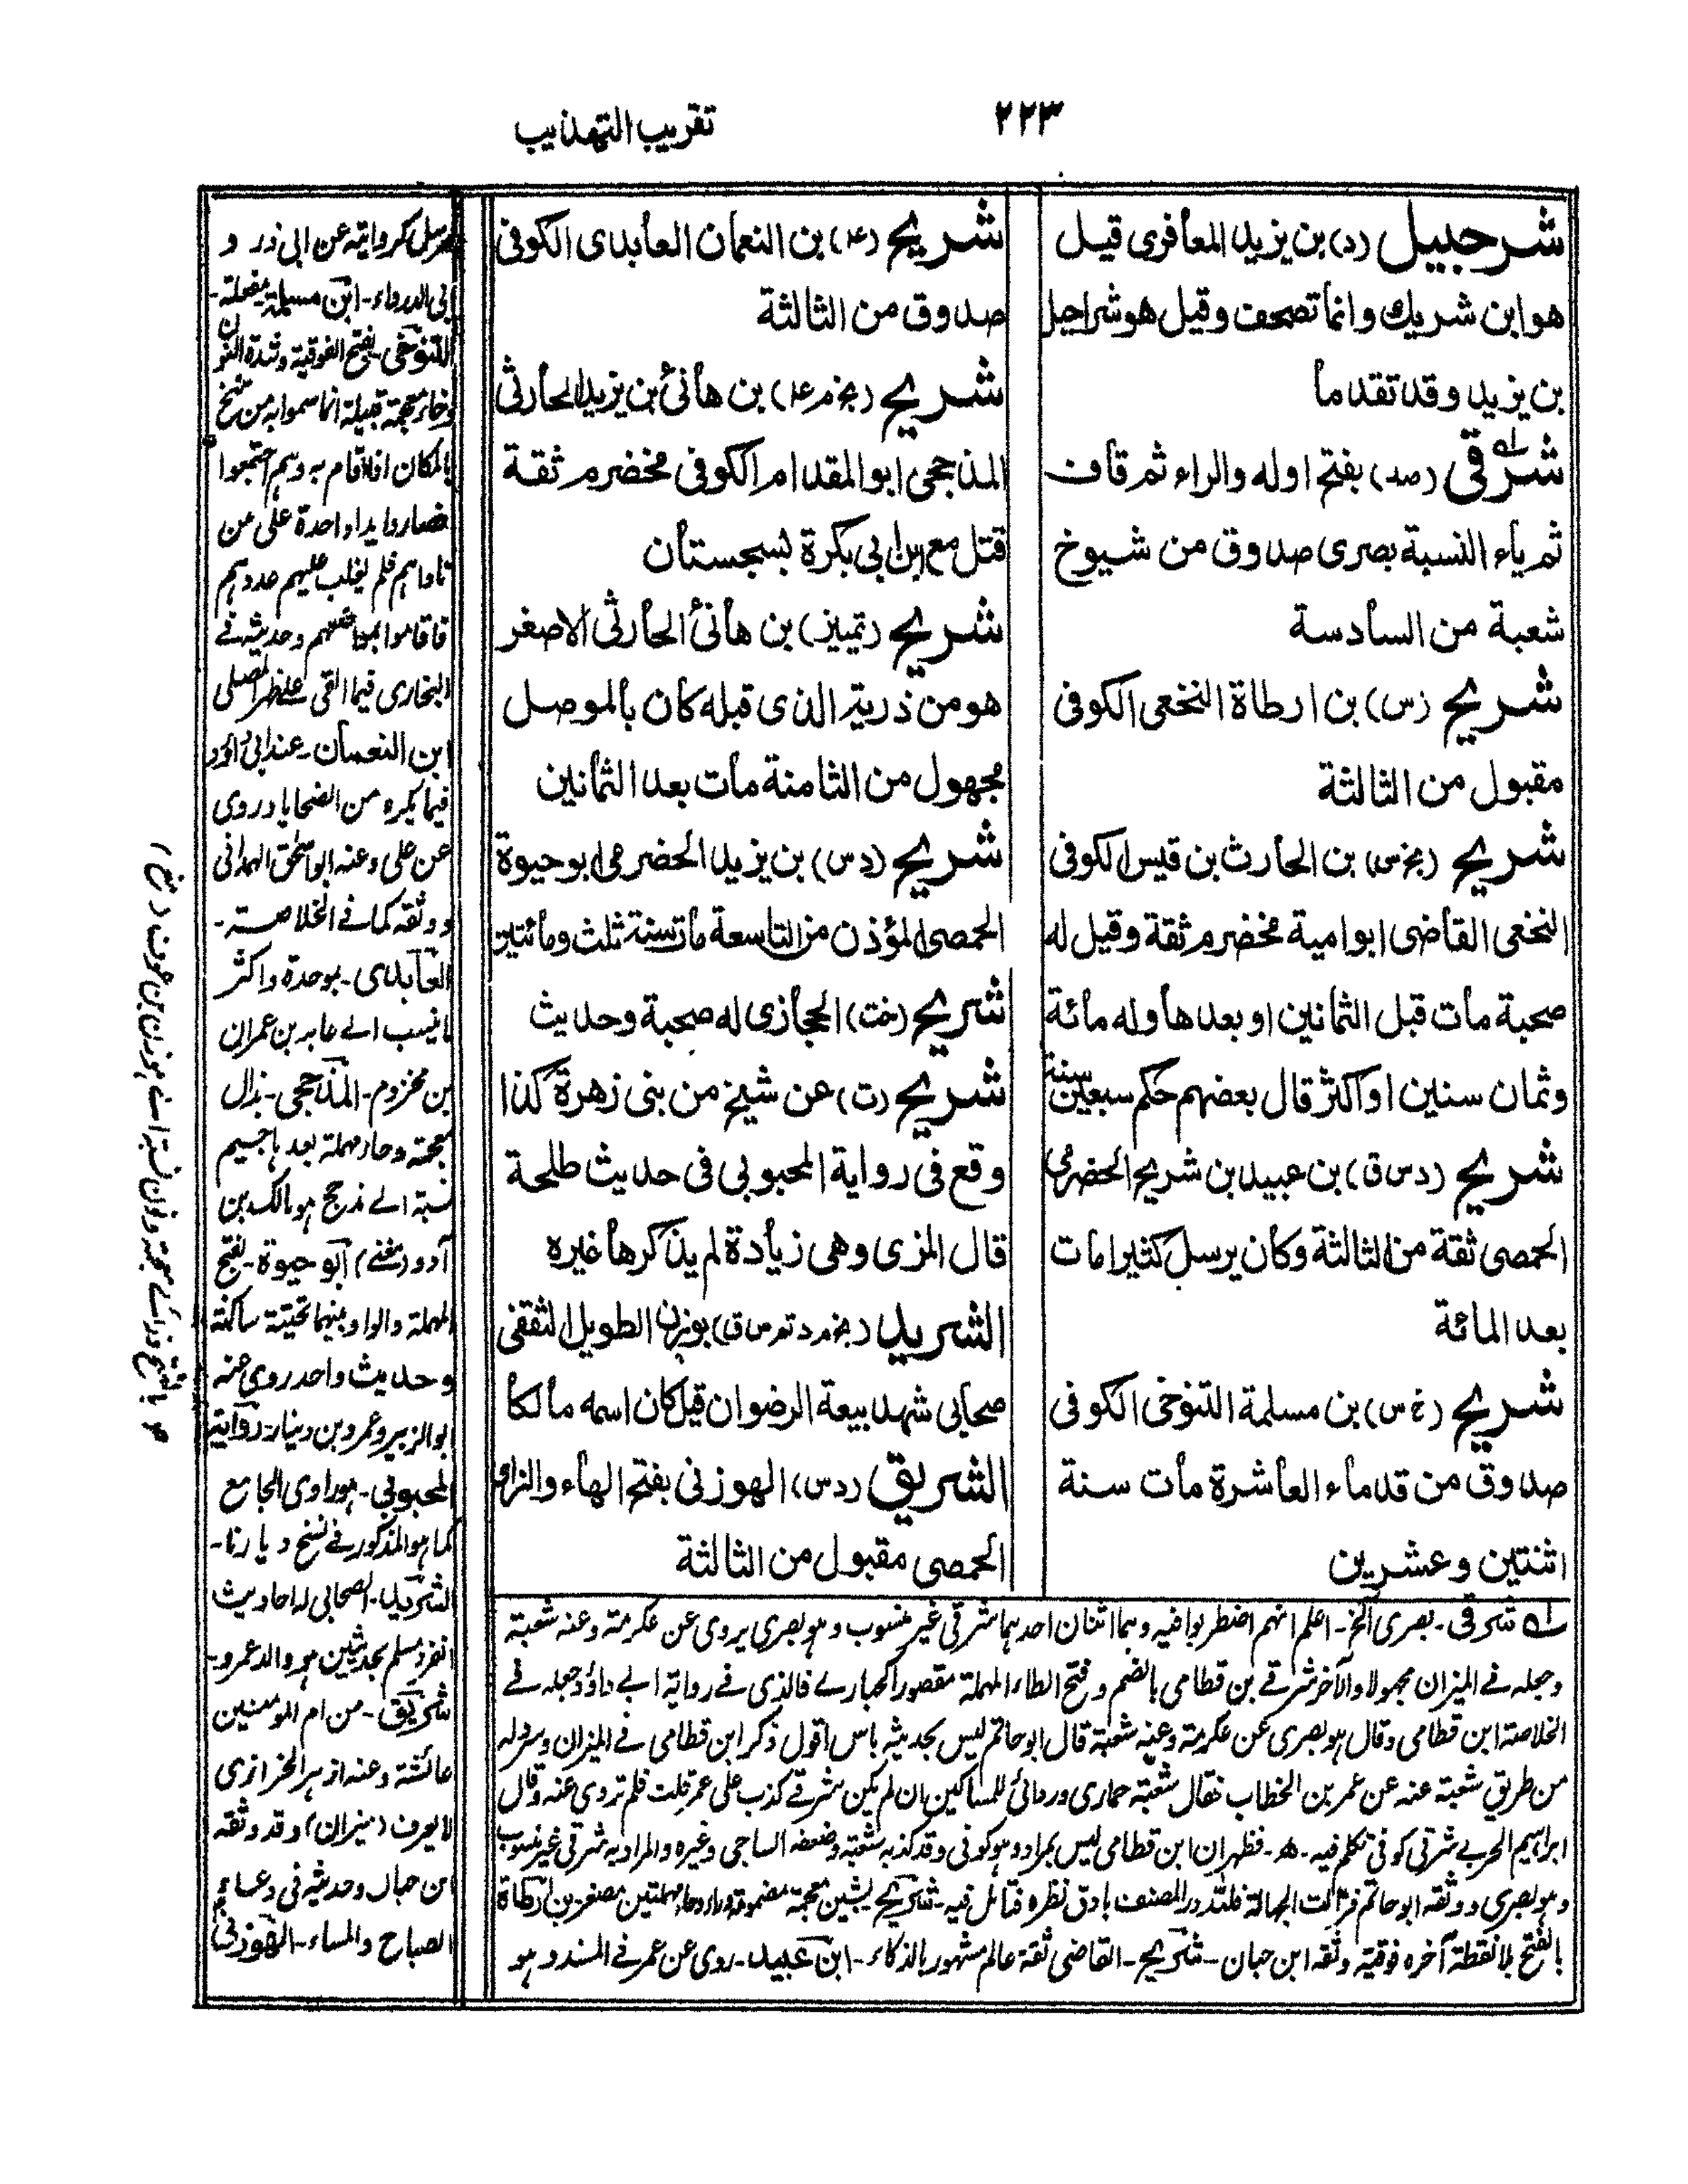 ٢٢٣
تقريب التهذيب
شرحبيل (د) بن يزيد المعافرى قيل
هو ابن شريك وانما تصحف وقيل هو شراحيل
بن يزيد وقد تقدما
شرقى (صد) بفتح اوله والراء ثم قاف
ثم ياء النسبة بصرى صدوق من شيوخ
شعبة من السادسة
شريح (س) بن ارطاة النخعى الكوفى
مقبول من الثالثة
شريح (بخ س) بن الحارث بن قيس الكوفى
النخعى القاضى ابو امية مخضرم ثقة وقيل له
صحبة مات قبل الثمانين او بعدها وله مائة
وثمان سنين او اكثر قال بعضهم حكم سبعين سنة
شريح (د س ق) بن عبيد بن شريح الحضرمى
الحمصى ثقة من الثالثة وكان يرسل كثيرا مات
بعد المائة
شريح (خ س) بن مسلمة التنوخى الكوفى
صدوق من قدماء العاشرة مات سنة
اثنتين وعشرين
شريح (٤) بن النعمان العابدى الكوفى
صدوق من الثالثة
شريح (بخ م ٤) بن هانئ بن يزيد الحارثى
المذحجى ابو المقدام الكوفى مخضرم ثقة
قتل مع ابن ابى بكرة بسجستان
شريح (تمييز) بن هانئ الحارثى الاصغر
هو من ذرية الذى قبله كان بالموصل
مجهول من الثامنة مات بعد الثمانين
شريح (د س) بن يزيد الحضرمى ابو حيوة
الحمصى المؤذن من التاسعة مات سنة ثلث ومائتين
شريح (خت) الحجازى له صحبة وحديث
شريح (ت) عن شيخ من بنى زهرة كذا
وقع فى رواية المحبوبى فى حديث طلحة
قال المزى وهى زيادة لم يذكرها غيره
الشريد (بخ م د تم س ق) بوزن الطويل الثقفى
صحابى شهد بيعة الرضوان قيل كان اسمه مالكا
الشريق (د س) الهوزنى بفتح الهاء والزاى
الحمصى مقبول من الثالثة
شرقى - بصرى الخ - اعلم انهم اضطربوا فيه وهما اثنان احدهما شرقى غير منسوب وهو بصرى يروى عن عكرمة وعنه شعبة
وجعله فى الميزان مجهولا والآخر شرقى بن قطامى بالضم وفتح الطاء المهملة مقصورا كحبارى فالذى فى رواية ابى داؤد جعله فى
الخلاصة ابن قطامى وقال هو بصرى عن عكرمة وعنه شعبة قال ابو حاتم ليس بحديثه باس اقول ذكر ابن قطامى فى الميزان وسرد له
من طريق شعبة عنه عن عمر بن الخطاب فقال شعبة حمارى وردائى للمساكين ان لم يكن شرقى كذب على عمر قلت فلم تروى عنه وقال
ابراهيم الحربى شرقى كوفى تكلم فيه - ه - فظهر ان ابن قطامى ليس بمراد وهو كوفى وقد كذبه شعبة وضعفه الساجى وغيره والمراد به شرقى غير منسوب
وهو بصرى ووثقه ابو حاتم فزالت الجهالة فلله در المصنف ما دق نظره فتامل فيه - شريح بشين معجمة مضمومة وراء وحاء مهملتين مصغر بن ارطاة
بالفتح بلا نقطة آخره فوقية وثقه ابن حبان - شريح - القاضى ثقة عالم مشهور بالذكاء - ابن عبيد - روى عن عمر فى المسند وهو
مرسل كروايته عن ابى ذر و
ابى الدرداء - ابن مسلمة بمفعلة -
التنوخى - بفتح الفوقية وشدة النون
وخاء معجمة قبيلة انما سموا به من تنخ
بالمكان اذا اقام به وهم اجتمعوا
فصاروا يدا واحدة على من
ناواهم فلم يغلب عليهم عددهم
فاقاموا بمواضعهم وحديثه فى
البخارى فيما القى على ظهر المصلى
ابن النعمان - عند ابى داؤد
فيما يكره من الضحايا روى
عن على وعنه ابو اسحق الهمدانى
ووثقه كما فى الخلاصة -
العابدى - بموحدة واكثر
ما ينسب الى عابد بن عمران
بن مخزوم - المذحجى - بذال
معجمة وحاء مهملة بعدها جيم
نسبة الى مذحج هو مالك بن
ادد (مغنى) ابو حيوة - بفتح
المهملة والواو بينهما تحتية ساكنة
وحديث واحد روى عنه
ابو الزبير وعمرو بن دينار - رواية
المحبوبى - هو راوى الجامع
كما هو المذكور فى نسخ ديارنا -
الشريد - الصحابى له احاديث
انفرد مسلم بحديثين هو والد عمرو -
شريق - من ام المومنين
عائشة وعنه ازهر الحرازى
لا يعرف (ميزان) وقد وثقه
ابن حبان وحديثه فى دعاء
الصباح والمساء - الهوزنى
بالفتح وزاى معجمة ونون نسبة الى هوزن بن عوف